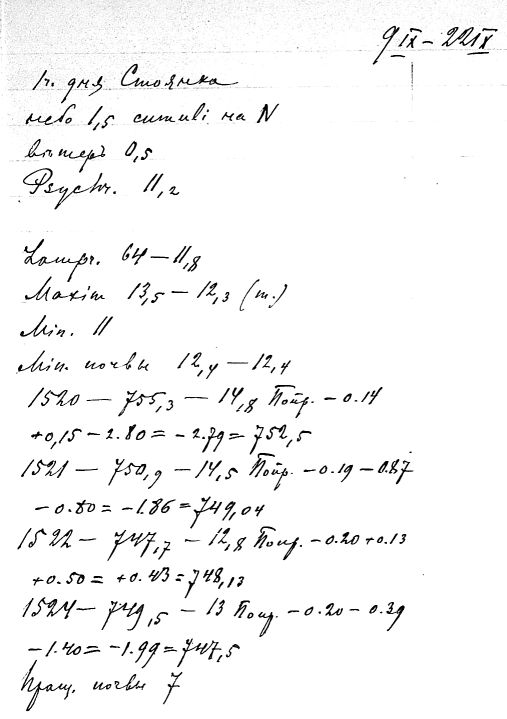 9 IX – 22 IX
1 ч. дня Стоянка
небо 1,5 cumuli на N
вѣтеръ 0,5
Psychr. 11,2
64 – 11,8
Maxim 13,5 – 12,3 (т.)
Min. 11
Min. почвы 12,4 – 12,4
1520 – 755,3 – 14,8 Попр. – 0.14
+0,15 – 2.80 = – 2.79 = 752,5
1521 – 750,9 – 14,5 Попр. – 0.19 – 0.87
– 0.80 = – 1.86 = 749,04
1522 – 747,7 – 12,8 Попр. – 0.20 + 0.13
+0.50 = +0.43 = 748,13
1524 – 749,5 – 13 Попр. – 0.20 – 0.39
– 1.40 = – 1.99 = 747,5
Пращ. почвы 7